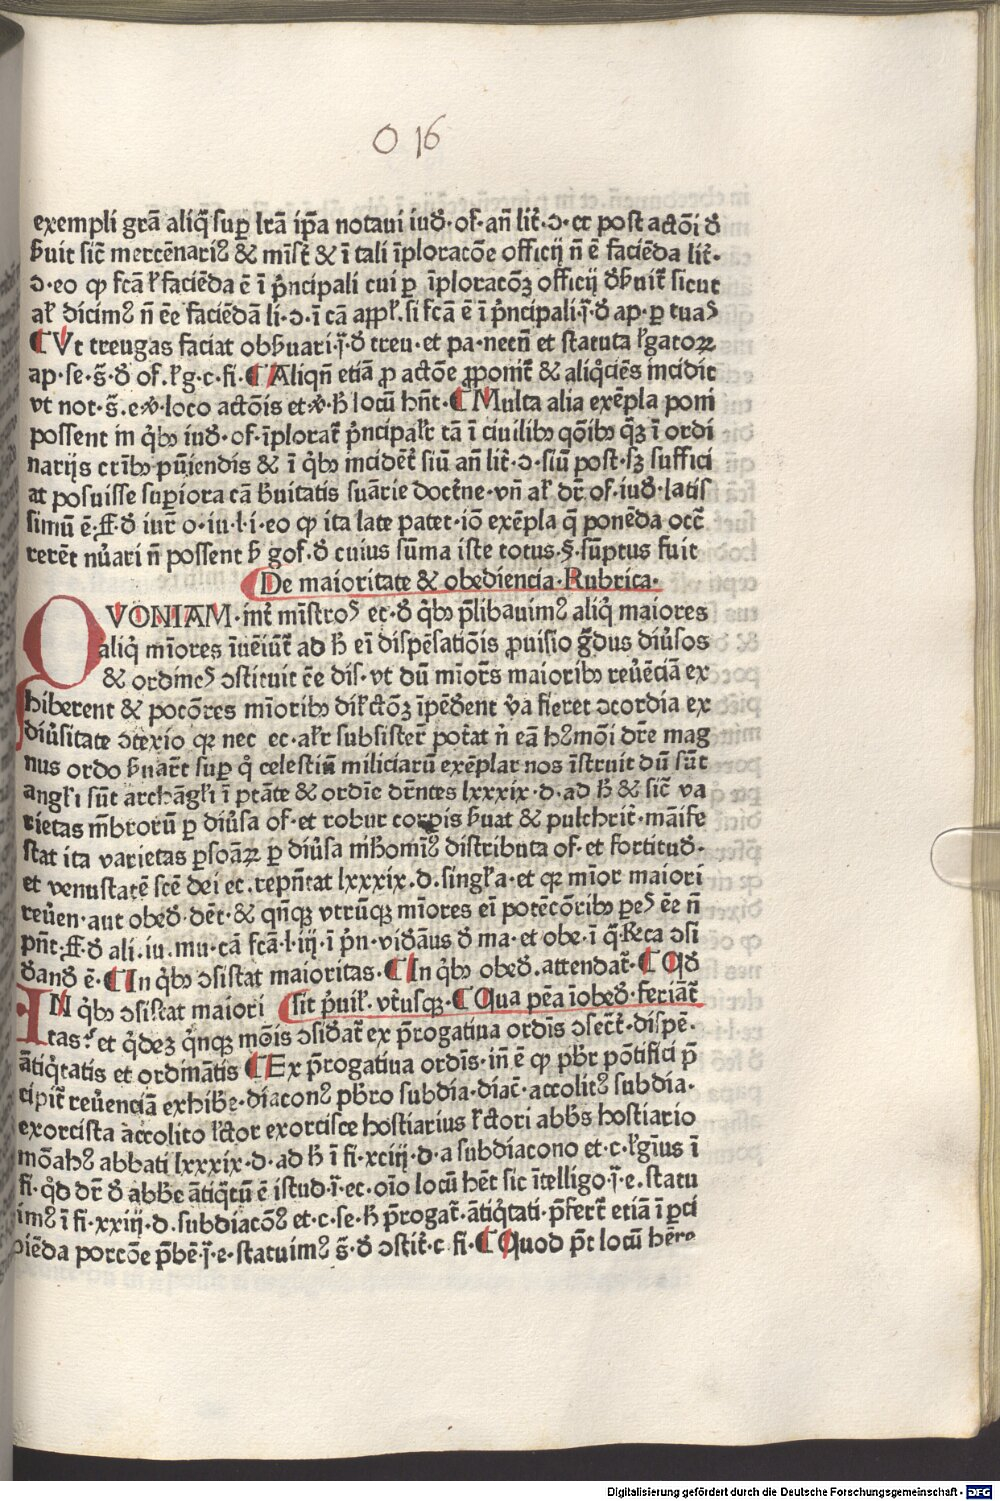 O 16
exempli grā aliq̄ sup lr̄a ip̄a notaui iud̄· of· an̄ lit̄· ɔ· cc post actōi đ
ƀuit sic̄ mercēnariꝰ & mīst̄ & ī tali īploracōe officij n̄ ē faciēda lit̄·
ɔ· eo ꝙ fc̄a ł faciēda ē ī p̄ncipali cui ꝑ īploracōꝫ officij đƀuit̄ sicut
ał dicimꝰ n̄ ēe faciēdā li· ɔ· ī cā appł· si fc̄a ē ī p̄ncipali· ī· đ ap· ꝑ tuas
¶ Vt treugas faciat obƀuari· ī· đ treu· et pa· necn̄ et statuta łgatoꝝ
ap· se· s̄· đ of· łg· c· fi· ¶ Aliqn̄ etiā ꝓ actōe ꝓponit̄ & aliq̄ciēs incidit
vt not· s̄· e· ꝟ· loco actōis et· ꝟ· ħ locū hn̄t· ¶ Multa alia exēpla poni
possent in q̇bꝫ iud̄· of· īplorat̄ p̄ncipałr tā ī ciuilibꝫ qōibꝫ q̄ꝫ ī ordi
narijs crībꝫ pun̄iendis & ī q̇bꝫ incidēt̄ siū an̄ lit̄· ɔ· siū post· sꝫ suffici
at posuisse superiora cā ƀuitatis suāꝛie doctn̄e· vn̄ ał dr̄· of· iud̄· latis
simū ē· ff· đ iur̄ o· iu· l· i· eo ꝙ ita late patet· iō exēpla q̄ ponēda occ̄
rerēt nūari n̄ possent ƀ gof· đ cuius sūma iste totus· §· sūptus fuit
De maioritate & obediencia· Rubrica·
QVONIAM· int̄ mīstros ec· đ q̇bꝫ p̄libauimꝰ aliq̇ maiores
aliq̇ mīores īuēiūt̄ ad ħ eī dispēsatiōis ꝓuisio gͣdus diūsos
& ordines ɔstituit ēe dis· vt dū mīor̄s maioribꝫ reūēciā ex
hiberent & pocōres mīoribꝫ dilctōꝫ īpēđent ỻa fieret ɔcordia ex
diūsitate ɔtexio qꝛ nec ec· ałr subsister̄ pot̄at n̄ eā hꝰmōi dr̄e mag
nus ordo ƀuar̄t sup q̇ celestiū miliciarū exēplar nos īstruit dū sūt
angłi sūt archāgłi ī ptāte & ordīe dr̄ntes lxxxix· d· ad ħ & sic̄ va
rietas mēbrorū ꝑ diūsa of· et robur corpis ƀuat & pulchrit̄· māife
stat ita varietas ꝑsoāꝝ ꝑ diūsa distributa of· et fortitud̄·
et venustatē scē dei ec· rep̄ntat lxxxix· d· singła· et qꝛ mīor maiori
reūen· aut obed̄· dēt· & qn̄qꝫ vtrūqꝫ mīores eī potēcōribꝫ pes ēe n̄
pn̄t· ff· đ ali· iu· mu· cā fc̄a· l· iij· ī pn̄· vid̄āus đ ma· et obe· ī q̄· Reca ɔsi
đand̄ ē· ¶ In q̇bꝫ ɔsistat maioritas· ¶ In q̇bꝫ obed̄· attendat̄· ¶ Qd̄
IN q̇bꝫ ɔsistat maiori sit p̄uił· vt̄usqꝫ· ¶ Qua pēa īobed̄· feriāt̄
tas· et q̇dez q̇nqꝫ mōis ɔsid̄at̄ ex p̄rogatiua ordīs ɔsec̄t· dispē·
ātiq̇tatis et ordināntis ¶ Ex p̄rogatiua ordīs· in̄ ē ꝙ pb̄r pōtifici p̄
cipit̄ reūenciā exhibē· diaconꝰ pb̄ro subdia· diac̄· accolitꝰ subdia·
exorcista accolito lc̄tor exorcisce hostiarius lc̄tori abb̄s hostiario
mōahꝰ abbati lxxxix· d· ad ħ ī fi· xciij· d· a subdiacono et· c· łgīus ī
fi· qđ dr̄ đ abb̄e ātiq̄tū ē istud· ī· ec· oīo locū hēt sic ītelligo· ī· e· statu
imꝰ ī fi· xxiij· d· subdiacōꝰ et· c· se· ħ p̄rogat̄· ātiq̇tati· p̄fert̄ etiā ī ꝑci
piēda porcōe p̄bē· ī· e· statuimꝰ s̄· đ ɔstit̄· c· fi· ¶ Quod p̄t locū hēre
Digitalisierung gefördert durch die Deutsche Forschungsgemeinschaft - DFG